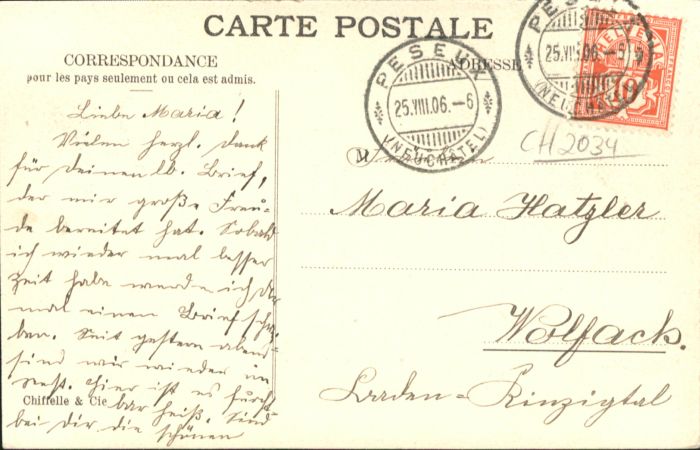 CARTE POSTALE
CORRESPONDANCE
pour les pays seulement ou cela est admis.
ADRESSE
PESEUX
25.VIII.06.-6
(NEUCHÂTEL)
PESEUX
25.VIII.06.-6
(NEUCHÂTEL)
HELVETIA
10
CH 2034
Liebe Maria!
Vielen herzl. Dank
für Deinen lb. Brief,
der mir große Freu-
de bereitet hat. Sobald
ich wieder mal besser
Zeit habe werde ich Dir
mal einen Brief schrei-
ben. Seit gestern abend
sind wir wieder im
Nest. Hier ist es furcht-
bar heiß. Sind
bei Dir die schönen
Chiffelle & Cie
M
Maria Hatzler
Wolfach.
Baden-Kinzigtal